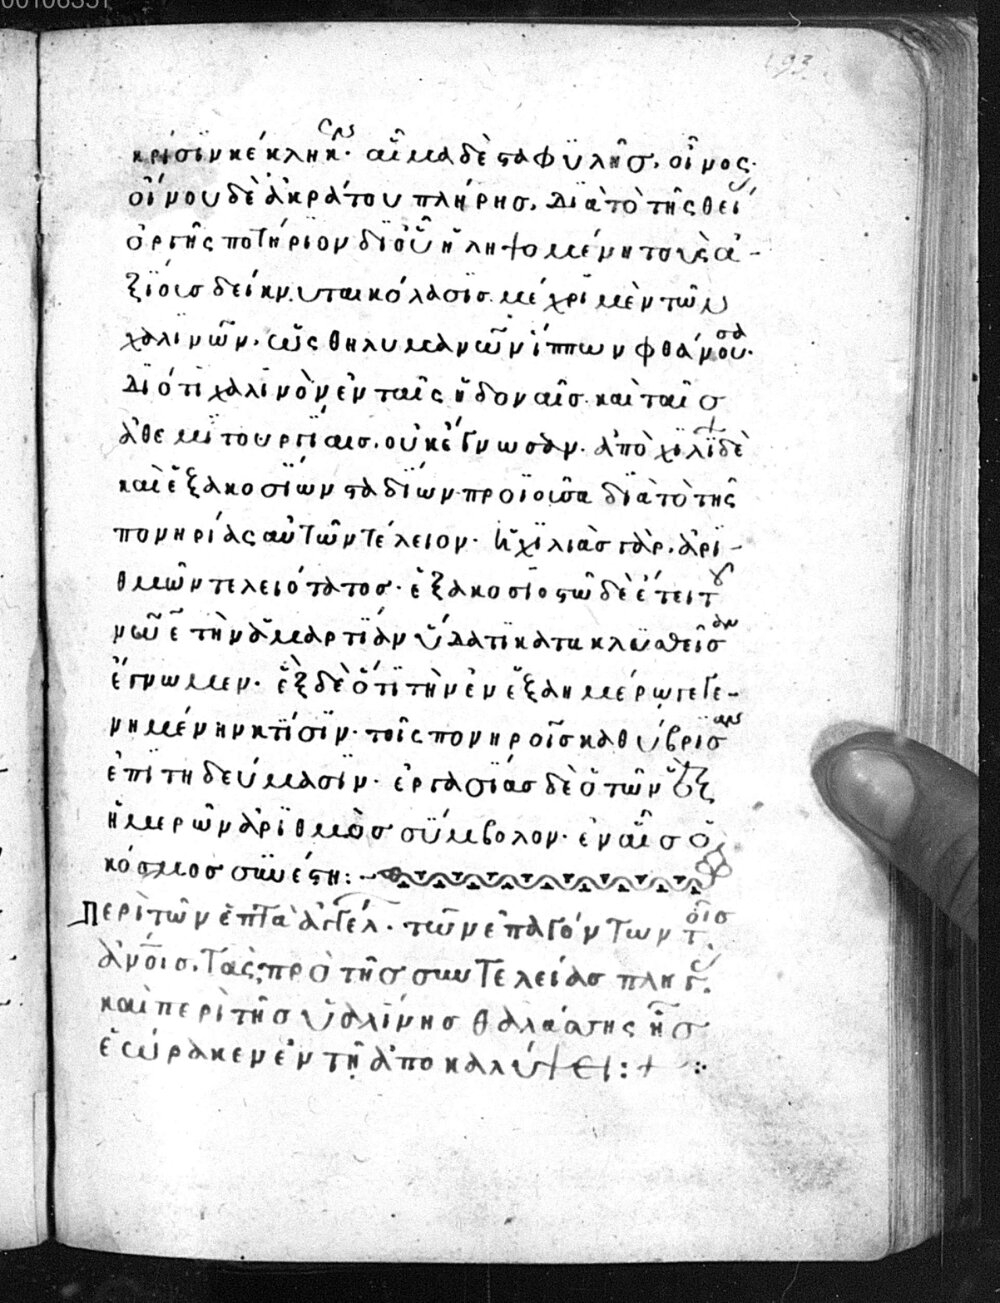 193
κρίσιν κέκληκ. αἷμα δὲ σταφυλῆς, οἶνος.
οἴνου δὲ ἀκράτου πλήρης. διὰ τὸ τῆς θεί
ὀργῆς ποτήριον δι οὗ ἡ ληψομένη τοὺς ἀ-
ξίοις δείκνυται κόλασις. μέχρι μὲν τῶν
χαλινῶν. ὡς θηλυμανῶν ἵππων φθάνουσα.
διότι χαλινὸν ἐν ταῖς ἡδοναῖς καὶ ταῖς
ἀθεμιτουργίαις. οὐκ ἔγνωσαν. ἀπὸ χιλι δὲ
καὶ ἑξακοσίων σταδίων προϊοῦσα διὰ τὸ τῆς
πονηρίας αὐτῶν τέλειον. ἡ χιλιὰς γὰρ. ἀρι-
θμῶν τελειότατος. ἑξακοσιοστῶ δὲ ἔτει τ
νῶε τὴν ἁμαρτίαν ὕδατι κατακλυσθεῖσαν
ἔγνωμεν. ἓξ δὲ ὅτι τὴν ἐν ἑξαημέρω γεγε-
νημένην κτίσιν. τοῖς πονηροῖς καθύβρισαν
ἐπιτηδεύμασιν. ἐργασίας δὲ ὁ τῶν ἓξ
ἡμερῶν ἀριθμὸς σύμβολον. ἐν αἷς ὁ
κόσμος συνέστη:
Περὶ τῶν ἑπτὰ ἀγγέλ. τῶν ἐπαγόντων τοῖς
ἀνοις. τὰς πρὸ τῆς συντελείας πληγ.
καὶ περὶ τῆς ὑαλίνης θαλάσσης ἧς
ἑώρακεν ἐν τῆ ἀποκαλύψει:+